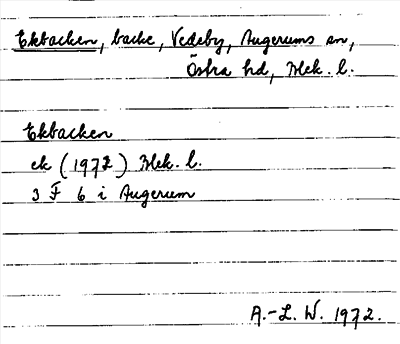 Ekbacken, backe, Vedeby, Augerums sn,
Östra hd, Blek. l.
Ekbacken
ek (1972) Blek. l.
3 F 6 i Augerum
A.-L. W. 1972.